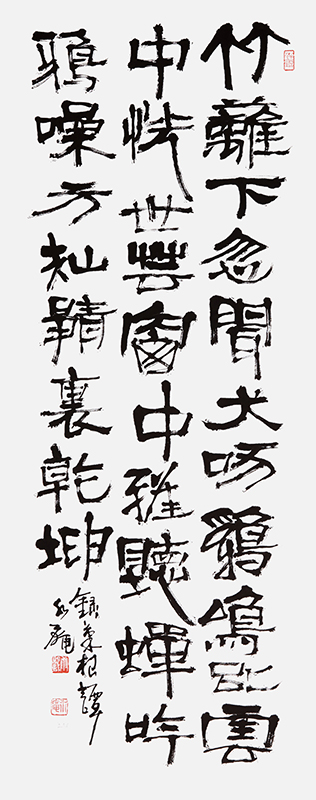 竹籬下忽聞犬吠鷄鳴似雲
中世芸窗中雅聽蟬吟
鴉噪方知靜裏乾坤
錄菜根譚